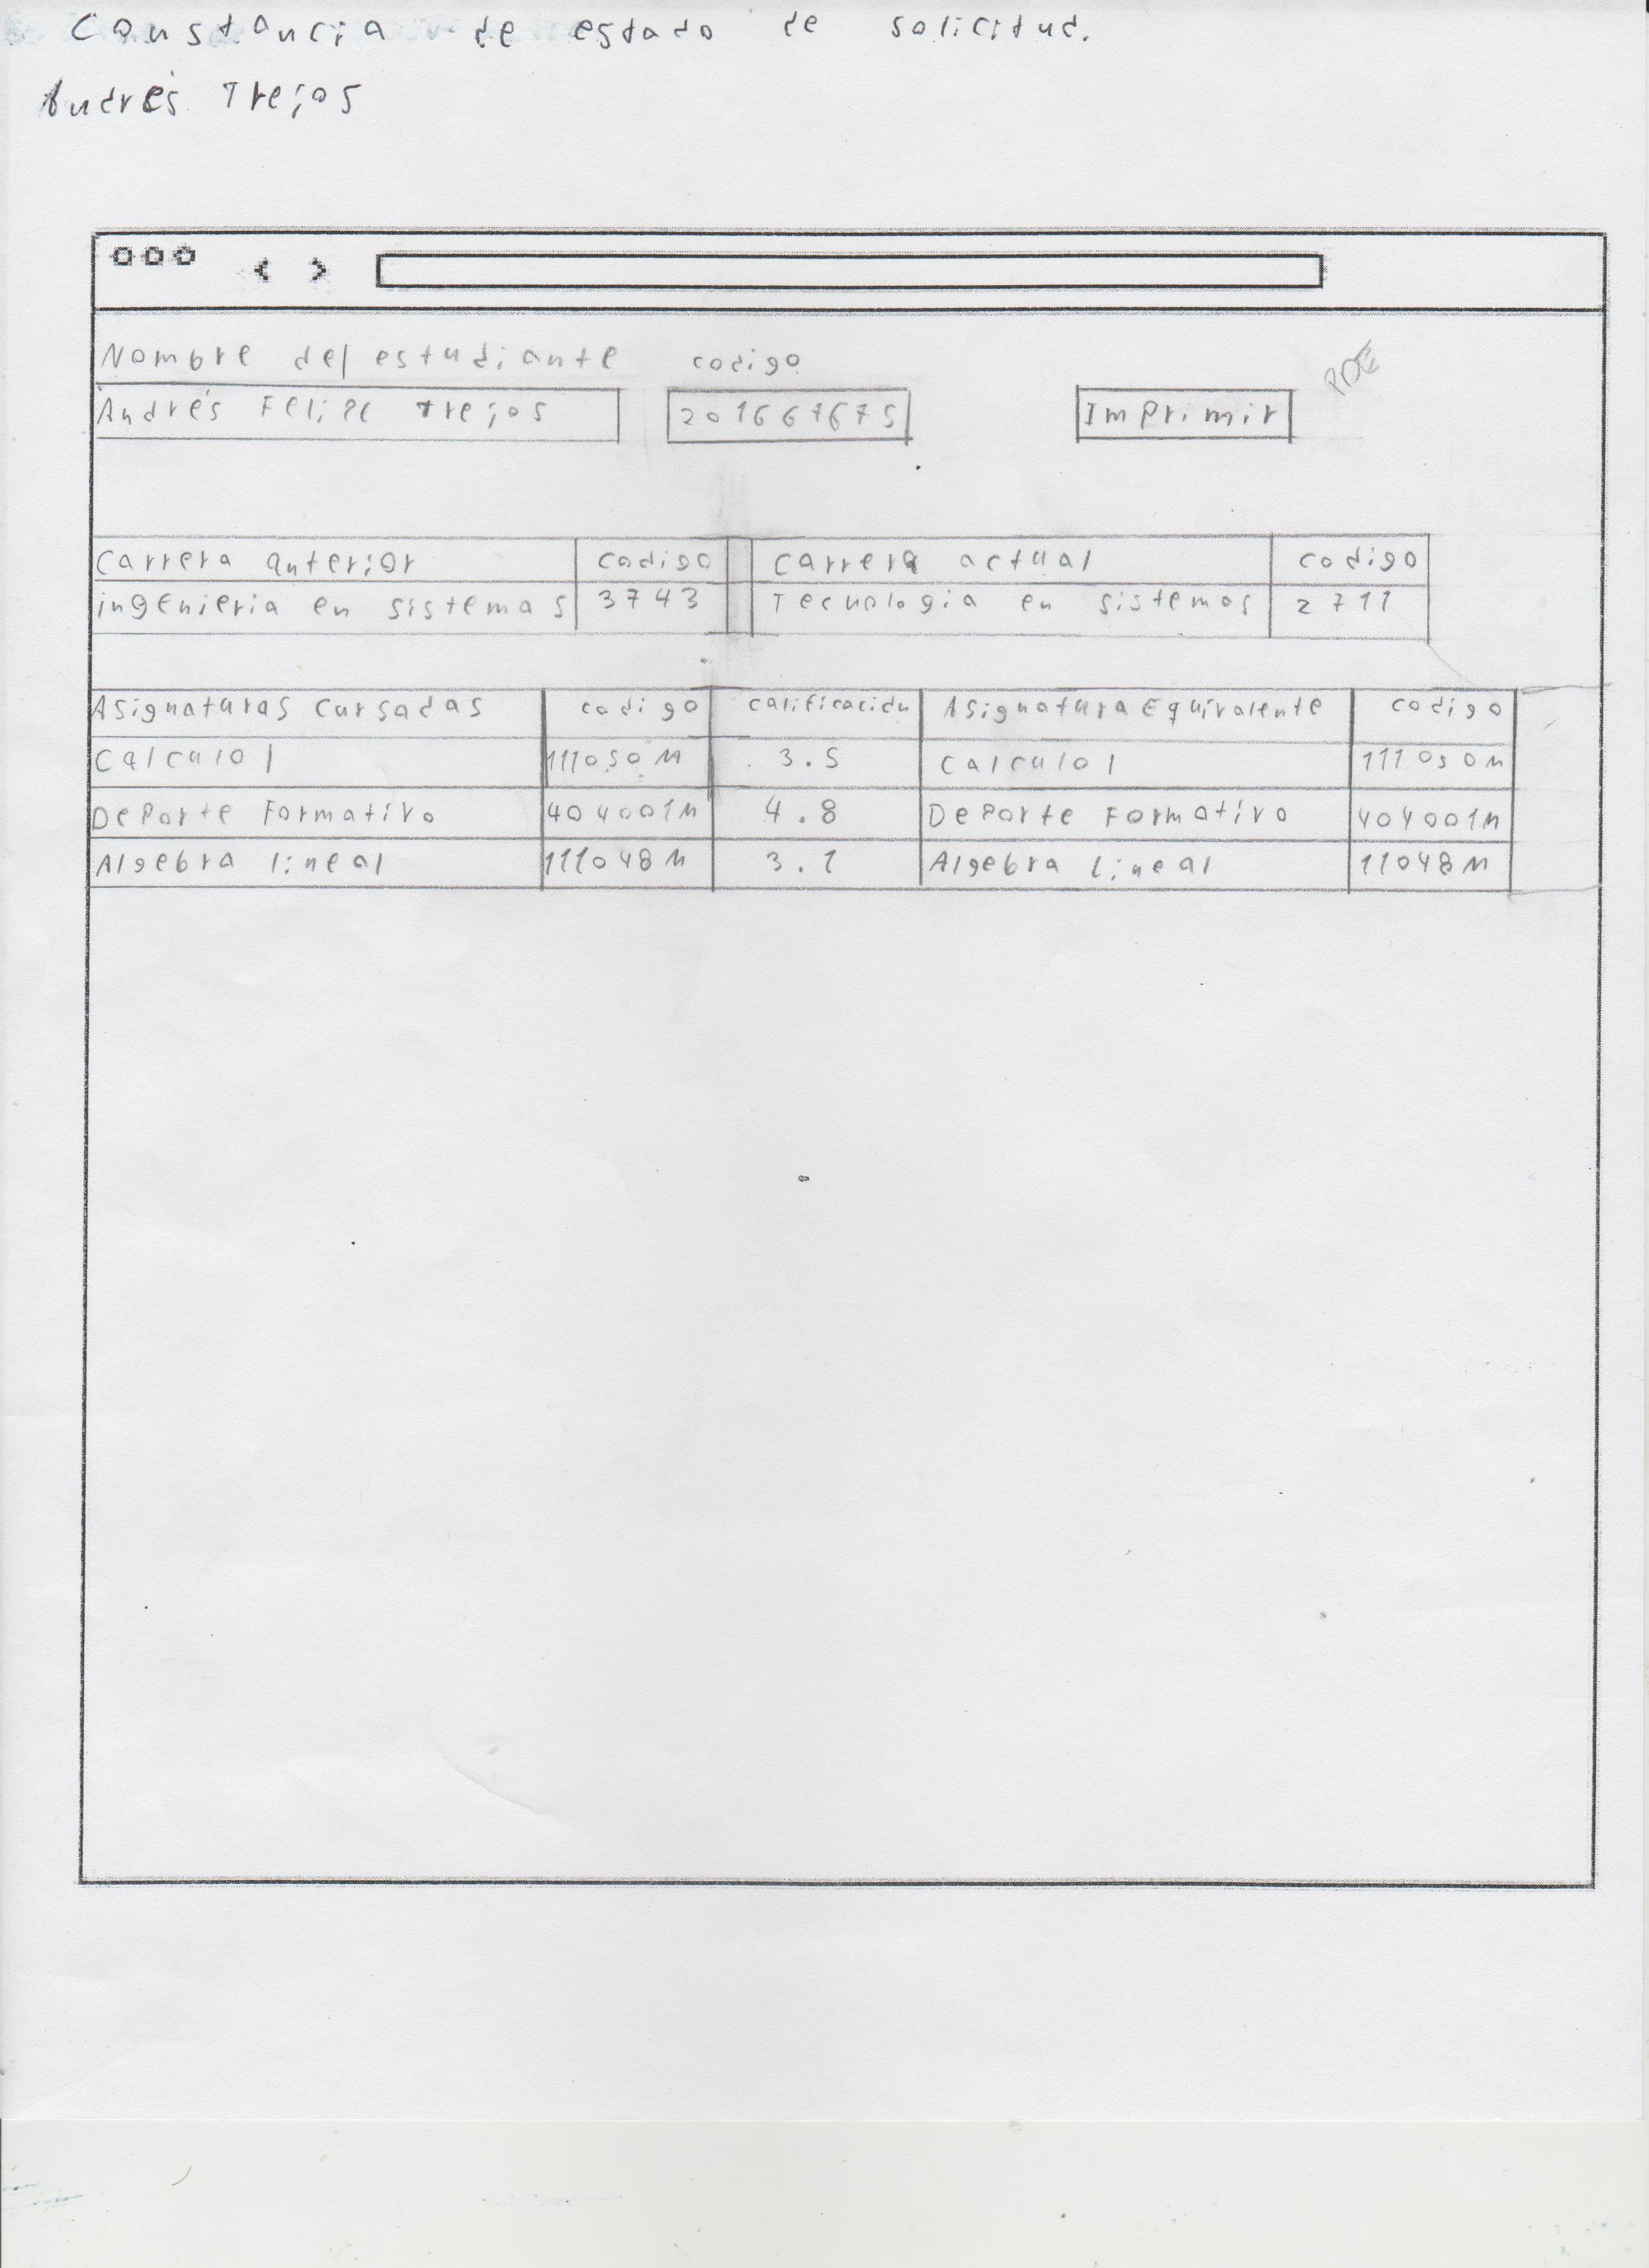 Constancia de estado de solicitud.
Andrés Trejos
Nombre del estudiante codigo
Andrés Felipe Trejos 201667675 Imprimir PDF
Carrera anterior codigo Carrera actual codigo
ingenieria en sistemas 3743 Tecnologia en sistemas 2711
Asignaturas Cursadas codigo calificación Asignatura Equivalente codigo
Calculo 1 111050M 3.5 Calculo 1 111050M
Deporte Formativo 404001M 4.8 Deporte Formativo 404001M
Algebra lineal 111048M 3.1 Algebra lineal 11048M